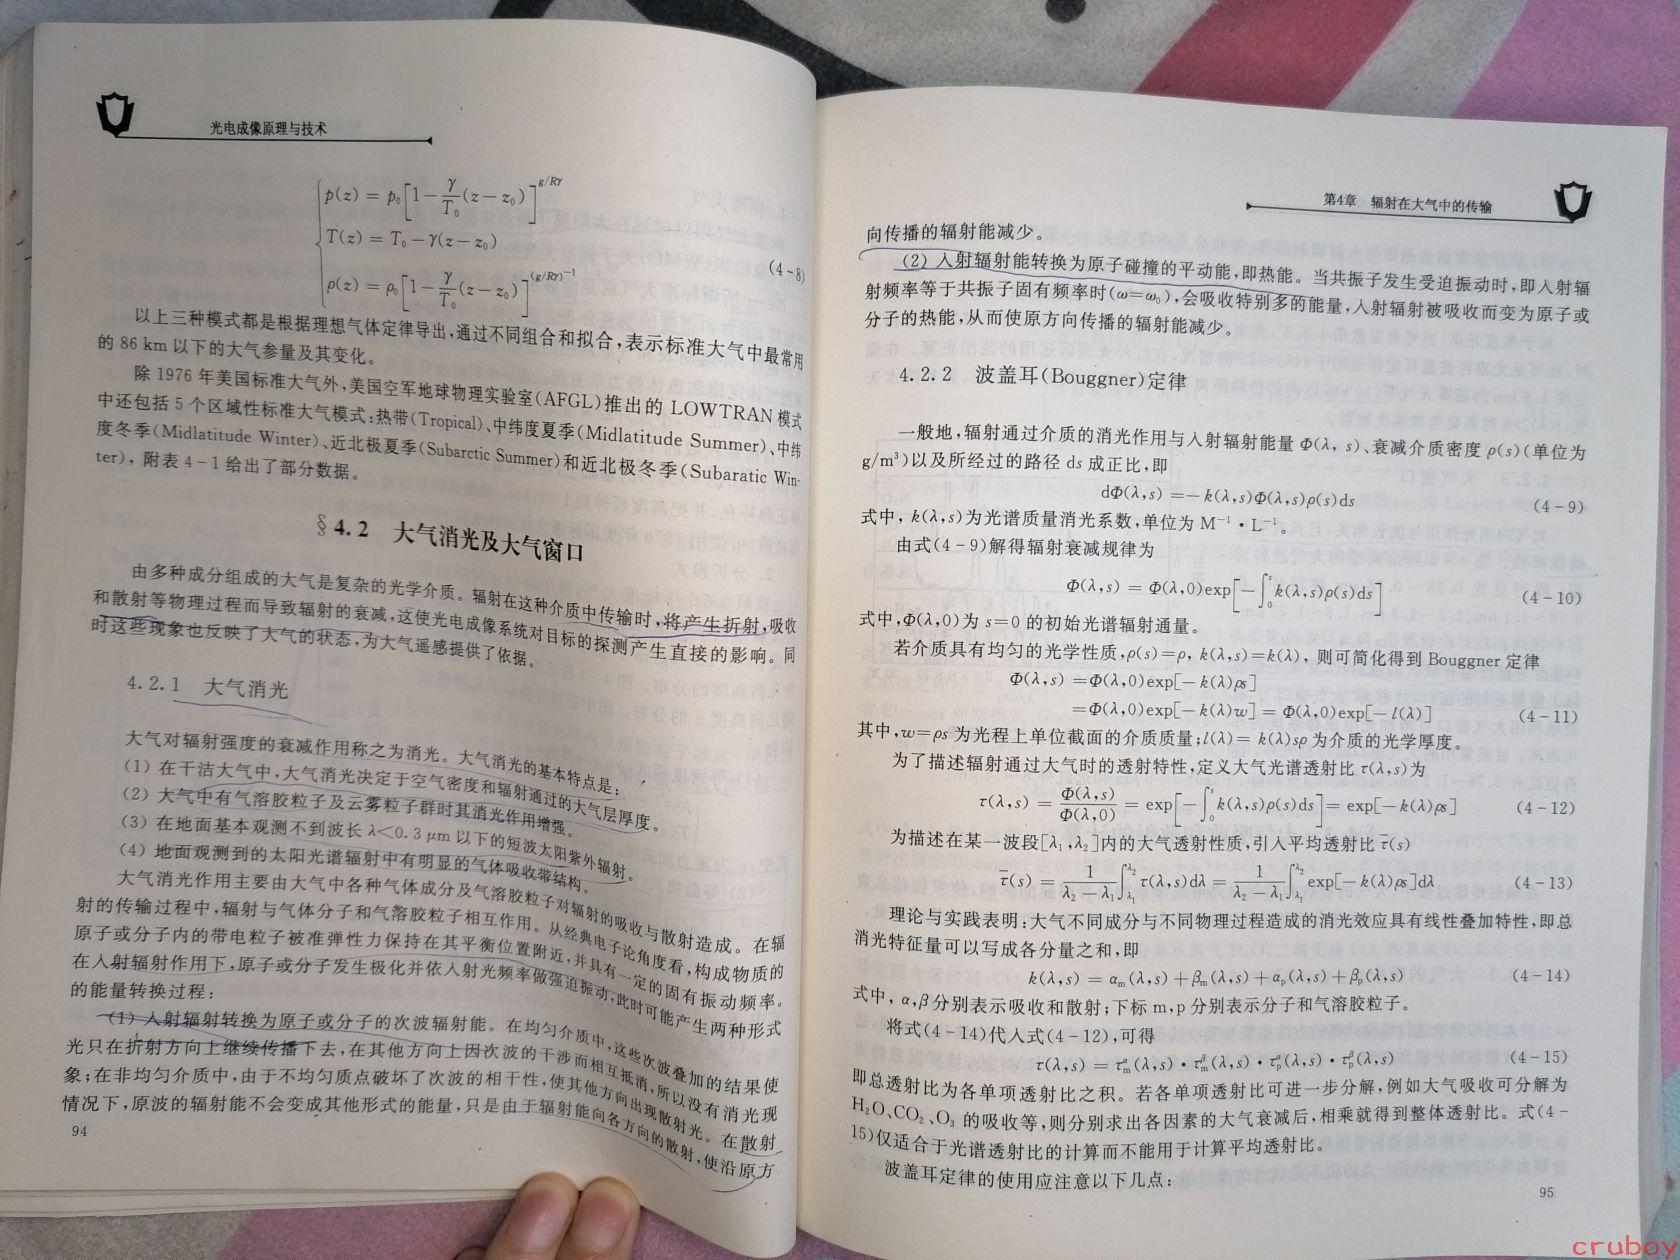 光电成像原理与技术
p(z) = p₀[1－γ/T₀(z－z₀)]^{g/Rγ}
T(z) = T₀－γ(z－z₀)
(4-8)
ρ(z) = ρ₀[1－γ/T₀(z－z₀)]^{(g/Rγ)-1}
以上三种模式都是根据理想气体定律导出,通过不同组合和拟合,表示标准大气中最常用
的 86 km 以下的大气参量及其变化。
除 1976 年美国标准大气外,美国空军地球物理实验室(AFGL)推出的 LOWTRAN 模式
中还包括 5 个区域性标准大气模式:热带(Tropical)、中纬度夏季(Midlatitude Summer)、中纬
度冬季(Midlatitude Winter)、近北极夏季(Subarctic Summer)和近北极冬季(Subaratic Win-
ter), 附表 4-1 给出了部分数据。
§4.2 大气消光及大气窗口
由多种成分组成的大气是复杂的光学介质。辐射在这种介质中传输时,将产生折射,吸收
和散射等物理过程而导致辐射的衰减,这使光电成像系统对目标的探测产生直接的影响。同
时这些现象也反映了大气的状态,为大气遥感提供了依据。
4.2.1 大气消光
大气对辐射强度的衰减作用称之为消光。大气消光的基本特点是:
(1) 在干洁大气中,大气消光决定于空气密度和辐射通过的大气层厚度。
(2) 大气中有气溶胶粒子及云雾粒子群时其消光作用增强。
(3) 在地面基本观测不到波长 λ<0.3 μm 以下的短波太阳紫外辐射。
(4) 地面观测到的太阳光谱辐射中有明显的气体吸收带结构。
大气消光作用主要由大气中各种气体成分及气溶胶粒子对辐射的吸收与散射造成。在辐
射的传输过程中,辐射与气体分子和气溶胶粒子相互作用。从经典电子论角度看,构成物质的
原子或分子内的带电粒子被准弹性力保持在其平衡位置附近,并具有一定的固有振动频率。
在入射辐射作用下,原子或分子发生极化并依入射光频率做强迫振动,此时可能产生两种形式
的能量转换过程:
(1) 入射辐射转换为原子或分子的次波辐射能。在均匀介质中,这些次波叠加的结果使
光只在折射方向上继续传播下去,在其他方向上因次波的干涉而相互抵消,所以没有消光现
象;在非均匀介质中,由于不均匀质点破坏了次波的相干性,使其他方向出现散射光。在散射
情况下,原波的辐射能不会变成其他形式的能量,只是由于辐射能向各方向的散射,使沿原方
94
第4章 辐射在大气中的传输
向传播的辐射能减少。
(2) 入射辐射能转换为原子碰撞的平动能,即热能。当共振子发生受迫振动时,即入射辐
射频率等于共振子固有频率时(ω=ω₀),会吸收特别多的能量,入射辐射被吸收而变为原子或
分子的热能,从而使原方向传播的辐射能减少。
4.2.2 波盖耳(Bouggner)定律
一般地,辐射通过介质的消光作用与入射辐射能量 Φ(λ, s)、衰减介质密度 ρ(s)(单位为
g/m³)以及所经过的路径 ds 成正比,即
dΦ(λ,s) =－k(λ,s)Φ(λ,s)ρ(s)ds (4-9)
式中, k(λ,s)为光谱质量消光系数,单位为 M⁻¹・L⁻¹。
由式(4-9)解得辐射衰减规律为
Φ(λ,s) = Φ(λ,0)exp[－∫₀ˢk(λ,s)ρ(s)ds] (4-10)
式中,Φ(λ,0)为 s=0 的初始光谱辐射通量。
若介质具有均匀的光学性质,ρ(s)=ρ, k(λ,s)=k(λ), 则可简化得到 Bouggner 定律
Φ(λ,s) =Φ(λ,0)exp[－k(λ)ρs]
=Φ(λ,0)exp[－k(λ)w] = Φ(λ,0)exp[－l(λ)] (4-11)
其中,w=ρs 为光程上单位截面的介质质量;l(λ)= k(λ)sρ 为介质的光学厚度。
为了描述辐射通过大气时的透射特性,定义大气光谱透射比 τ(λ,s)为
τ(λ,s) = Φ(λ,s)/Φ(λ,0) = exp[－∫₀ˢk(λ,s)ρ(s)ds]= exp[－k(λ)ρs] (4-12)
为描述在某一波段[λ₁,λ₂]内的大气透射性质,引入平均透射比 τ̄(s)
τ̄(s) = 1/(λ₂－λ₁)∫_{λ₁}^{λ₂}τ(λ,s)dλ = 1/(λ₂－λ₁)∫_{λ₁}^{λ₂}exp[－k(λ)ρs]dλ (4-13)
理论与实践表明:大气不同成分与不同物理过程造成的消光效应具有线性叠加特性,即总
消光特征量可以写成各分量之和,即
k(λ,s) = αₘ(λ,s)＋βₘ(λ,s)＋αₚ(λ,s)＋βₚ(λ,s) (4-14)
式中, α,β分别表示吸收和散射;下标 m,p 分别表示分子和气溶胶粒子。
将式(4-14)代入式(4-12),可得
τ(λ,s) = τₘ^α(λ,s)・τₘ^β(λ,s)・τₚ^α(λ,s)・τₚ^β(λ,s) (4-15)
即总透射比为各单项透射比之积。若各单项透射比可进一步分解,例如大气吸收可分解为
H₂O、CO₂、O₃ 的吸收等,则分别求出各因素的大气衰减后,相乘就得到整体透射比。式(4-
15)仅适合于光谱透射比的计算而不能用于计算平均透射比。
波盖耳定律的使用应注意以下几点:
95
cruboy